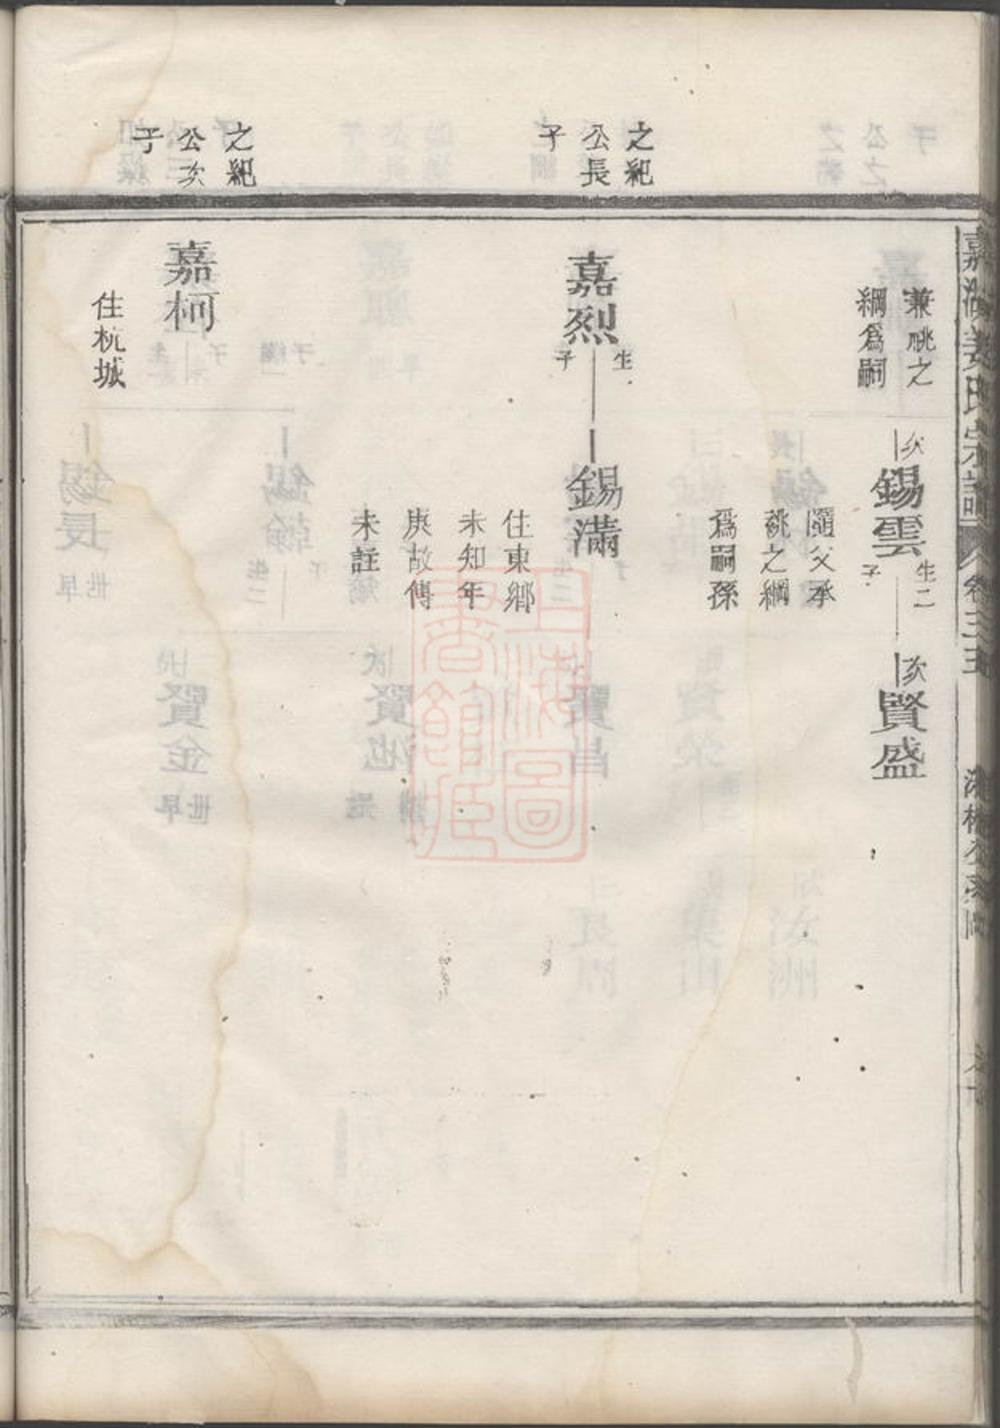 之紀
公長
子
之紀
公次
子
兼祧之
綱爲嗣
次
錫雲
生二
子
次
賢盛
隨父承
祧之綱
爲嗣孫
嘉烈
生
子
錫滿
住東鄉
未知年
庚故傳
未註
嘉柯
住杭城
上海圖
書館藏